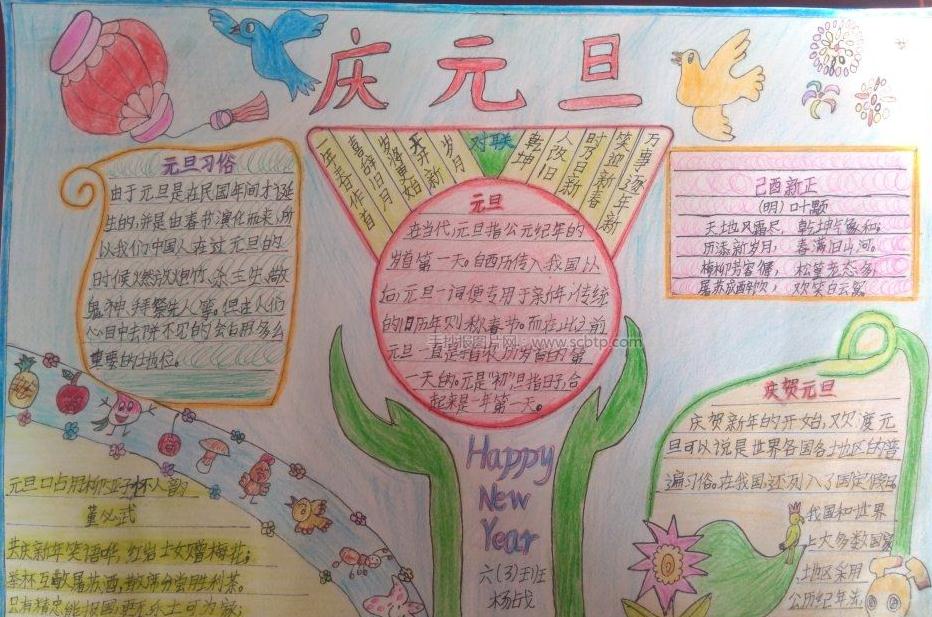 庆元旦
元旦习俗
由于元旦是在民国年间才诞
生的,并是由春节演化而来,所
以我们中国人在过元旦的
时候燃放炮竹、杀三牲、敬
鬼神、拜祭先人等。但在人们
心目中
重要的地位。
对联
年春作首
喜辞旧月
岁将更始
天开新
岁月
乾坤
人改旧
时乃日新
笑迎新春
万事逐年新
元旦
在当代,元旦指公元纪年的
岁首第一天。自西历传入我国以
后,元旦一词便专用于新年,传统
的旧历年则称春节。而在此之前
元旦一直是指农历岁首的第
一天的。元是“初”旦指日子,合
起来是一年第一天。
手抄报图片网 www.scbtp.com
己酉新正
(明)叶颙
天地风霜尽,乾坤气象和;
历添新岁月,春满旧山河。
梅柳芳容
屠苏成醉饮,欢笑白云窝
庆贺元旦
庆贺新年的开始,欢度元
旦可以说是世界各国各地区的普
遍习俗。在我国还列入了国定假日
我国和世界
上大多数国家
地区采用
公历纪年法,
元旦口占用柳亚子怀人韵
董必武
共庆新年笑语哗,红岩士女赠梅花;
举杯互敬屠苏酒,散席分尝胜利茶。
只有精忠能报国,更无乐土可为家;
Happy
New
Year
六(3)班
杨战